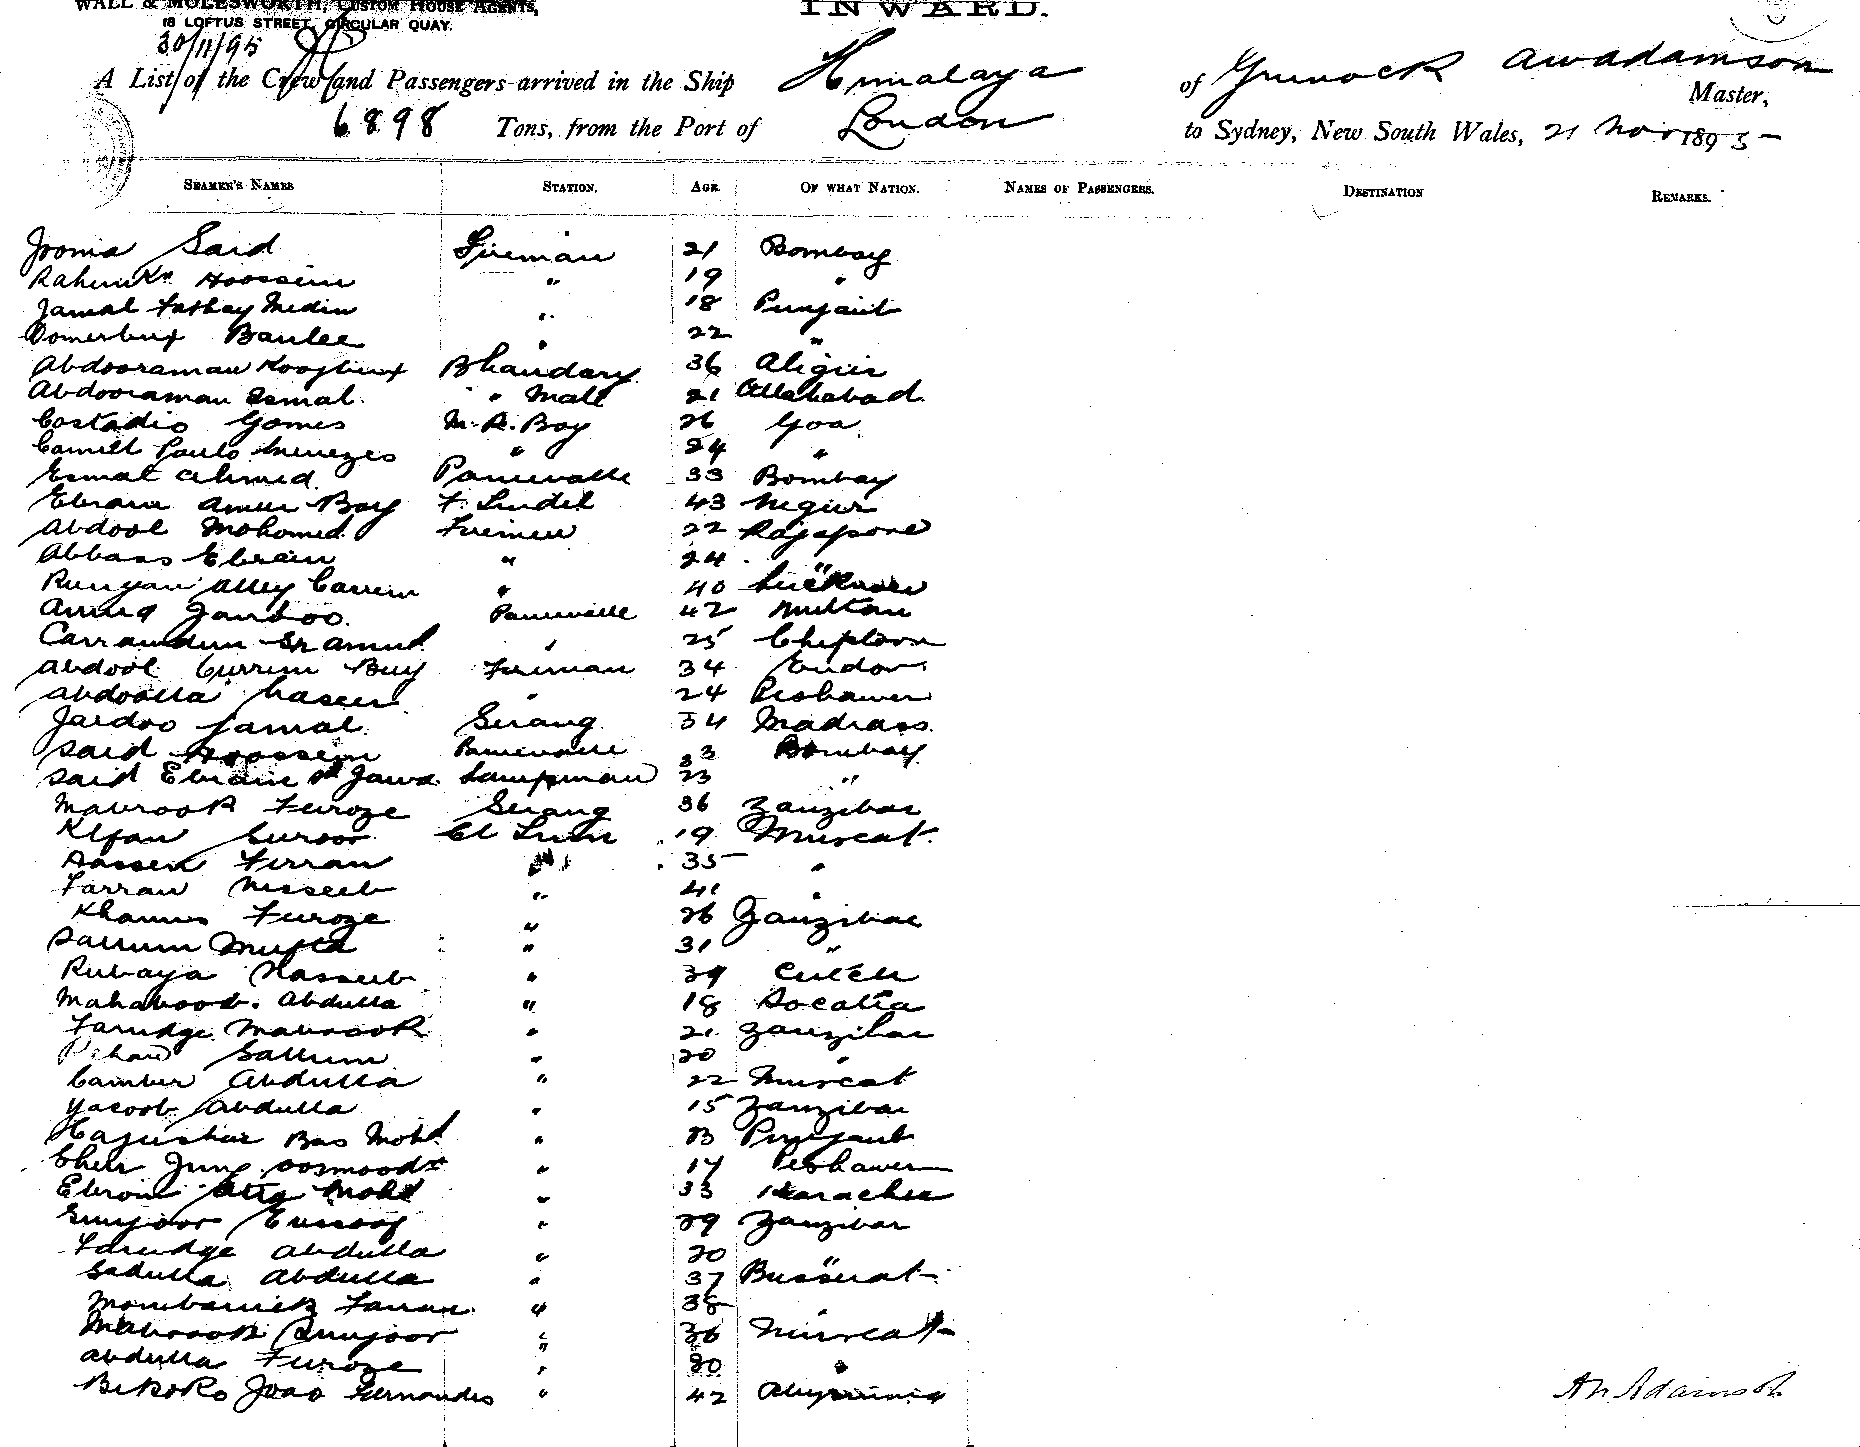 WALL & MOLESWORTH, CUSTOM HOUSE AGENTS,
18 LOFTUS STREET, CIRCULAR QUAY.
INWARD.
30/11/95
A List of the Crew and Passengers arrived in the Ship Himalaya of Greenock A W Adamson Master,
6898 Tons, from the Port of London to Sydney, New South Wales, 21 Nov 1895
SEAMEN'S NAMES STATION. AGE. OF WHAT NATION. NAMES OF PASSENGERS. DESTINATION REMARKS.
Jooma Said Fireman 21 Bombay
Hoossein " 19 "
Jamal Medin " 18 Punjaub
Baulee " 22 "
Abdooraman Bhandary 36 Aligur
Abdooraman Esmal " Mate 21 Allahabad
Costadio Gomes M. R. Boy 26 Goa
Camill Paulo Menezes " 24 "
Esmal Ahmed Paniewalle 33 Bombay
Ebram Ameer Boy F. Tindel 43
Abdool Mohomed Firemen 22 Rajapore
Abbass Ebraim " 24 "
Alley Carrim " 40 Lucknow
Jamboo Paniewalle 42 Multan
" 25 Chiploon
Abdool Currim Buy Fireman 34 Endor
Abdoolla Naseer " 24 Peshawer
Jardoo Jamal Serang 34 Madrass
Said Hoossein Paniewalle 33 Bombay
Said Ebraim Lampman 23 "
Mabrook Feroze Serang 36 Zanzibar
Suroor 19 Muscat
Ferran " 35 "
Farran Nasseeb " 41 "
Khamis Feroze " 26 Zanzibar
Sallum Mufta " 31 "
Rubaya Nasseeb " 39 Cutch
Mahabood Abdulla " 18 Socatra
Farudge Mabrook " 21 Zanzibar
Sallum " 20 "
Camber Abdulla " 22 Muscat
Yacoob Abdulla " 15 Zanzibar
Bax Mohd " Punjaub
Cheer Jung " 17 Peshawer
Ebroim Mohd " 33 Karachee
Sunjoor Eussoof " 29 Zanzibar
Farudge Abdulla " 20 "
Sadulla Abdulla " 37 Busserat
Farran " 38 "
Mabrook Sunjoor " 36 Muscat
Abdulla Feroze " 30 "
Joao Fernandes " 42 Abyssinia
A W Adamson